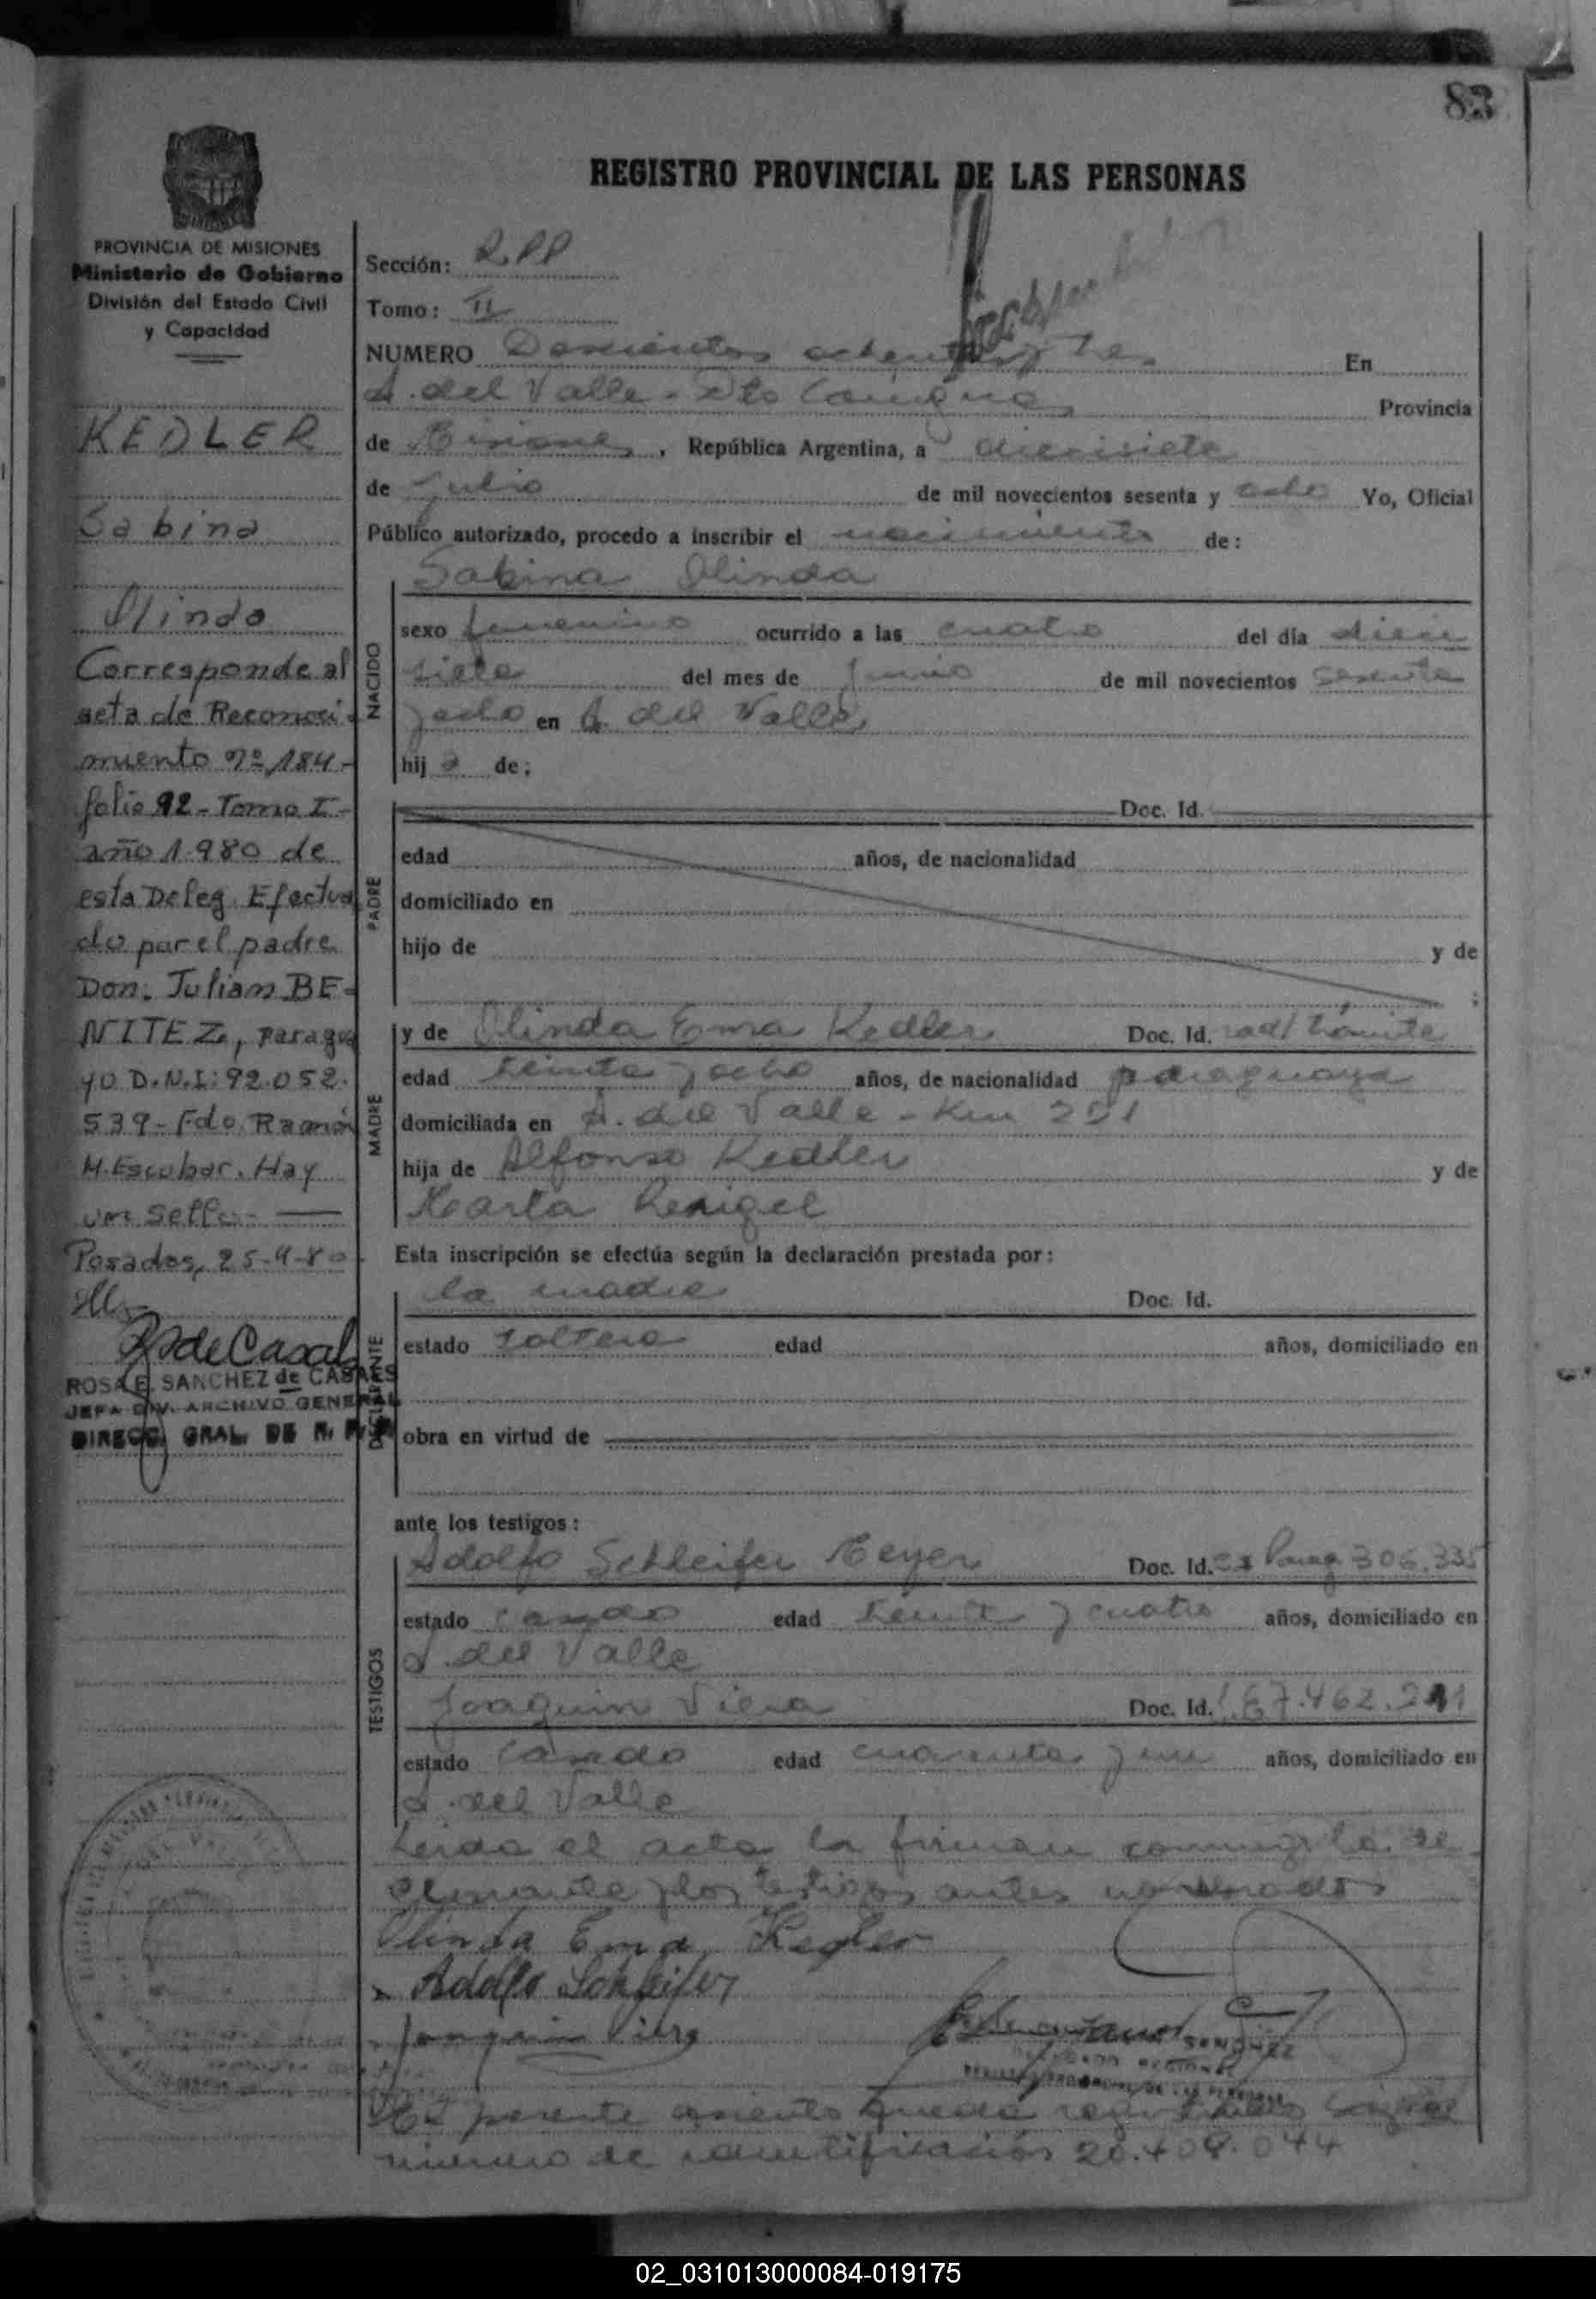 83
REGISTRO PROVINCIAL DE LAS PERSONAS
PROVINCIA DE MISIONES
Ministerio de Gobierno
División del Estado Civil
y Capacidad
KEDLER
Sabina
Olinda
Corresponde al
acta de Reconoci-
miento nº 184-
folio 92 - Tomo I -
año 1.980 de
esta Deleg. Efectua
do por el padre
Don. Julian BE-
NITEZ, paragua
yo D.N.I: 92.052.
539 - Fdo. Ramón
M. Escobar. Hay
un sello -
Posadas, 25-4-80
ROSA E. SANCHEZ de CASALES
JEFA DIV. ARCHIVO GENERAL
DIRECC. GRAL. DE R. P. P.
Sección: R.P.P
Tomo: II
NUMERO Doscientos ochenta y tres En
A. del Valle - Dto Cainguas Provincia
de Misiones, República Argentina, a diecisiete
de Julio de mil novecientos sesenta y ocho Yo, Oficial
Público autorizado, procedo a inscribir el nacimiento de:
NACIDO
Sabina Olinda
sexo femenino ocurrido a las cuatro del día dieci
siete del mes de Junio de mil novecientos sesenta
y ocho en A. del Valle
hija de:
PADRE
Doc. Id.
edad años, de nacionalidad
domiciliado en
hijo de y de
;
MADRE
y de Olinda Ema Kedler Doc. Id. rad/trámite
edad treinta y ocho años, de nacionalidad paraguaya
domiciliada en A. del Valle - Km 251
hija de Alfonso Kedler y de
Marta
Esta inscripción se efectúa según la declaración prestada por:
la madre Doc. Id.
estado soltera edad años, domiciliado en
obra en virtud de
ante los testigos:
TESTIGOS
Adolfo Schleifer Meyer Doc. Id. Parag 306.335
estado casado edad treinta y cuatro años, domiciliado en
A. del Valle
Joaquin Viera Doc. Id. 7.462.211
estado casado edad cuarenta y un años, domiciliado en
A. del Valle
Leida el acta la firman conmigo la de
clarante y los testigos antes nombrados
Olinda Ema Kedler
Adolfo Schleifer
Joaquin Viera
SANCHEZ
El presente asiento queda registrado
número de identificación 20.408.044
02_031013000084-019175